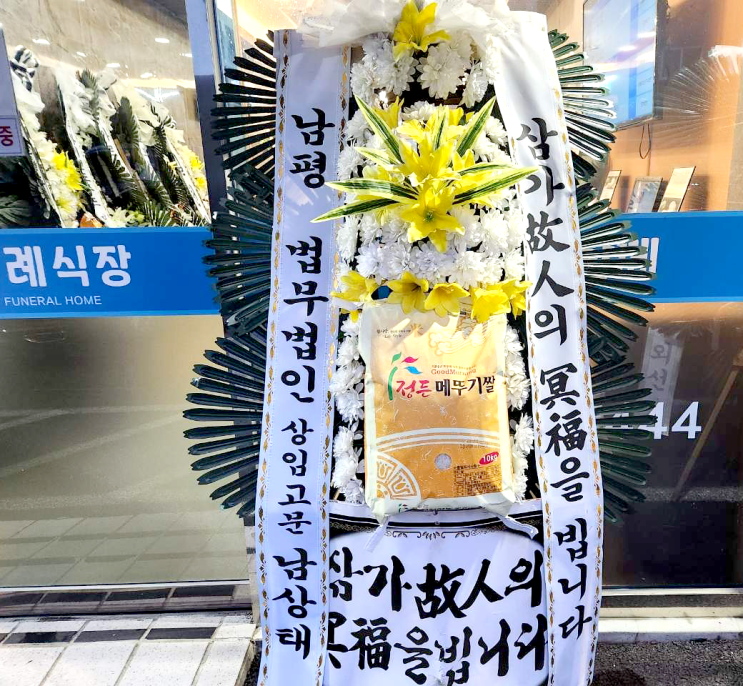 중
레식장
FUNERAL HOME
남평 법무법인 상임고문 남상태
삼가故人의 冥福을 빕니다
정든 메뚜기쌀
GoodMorning
10kg
삼가故人의
冥福을빕니다
외선
44